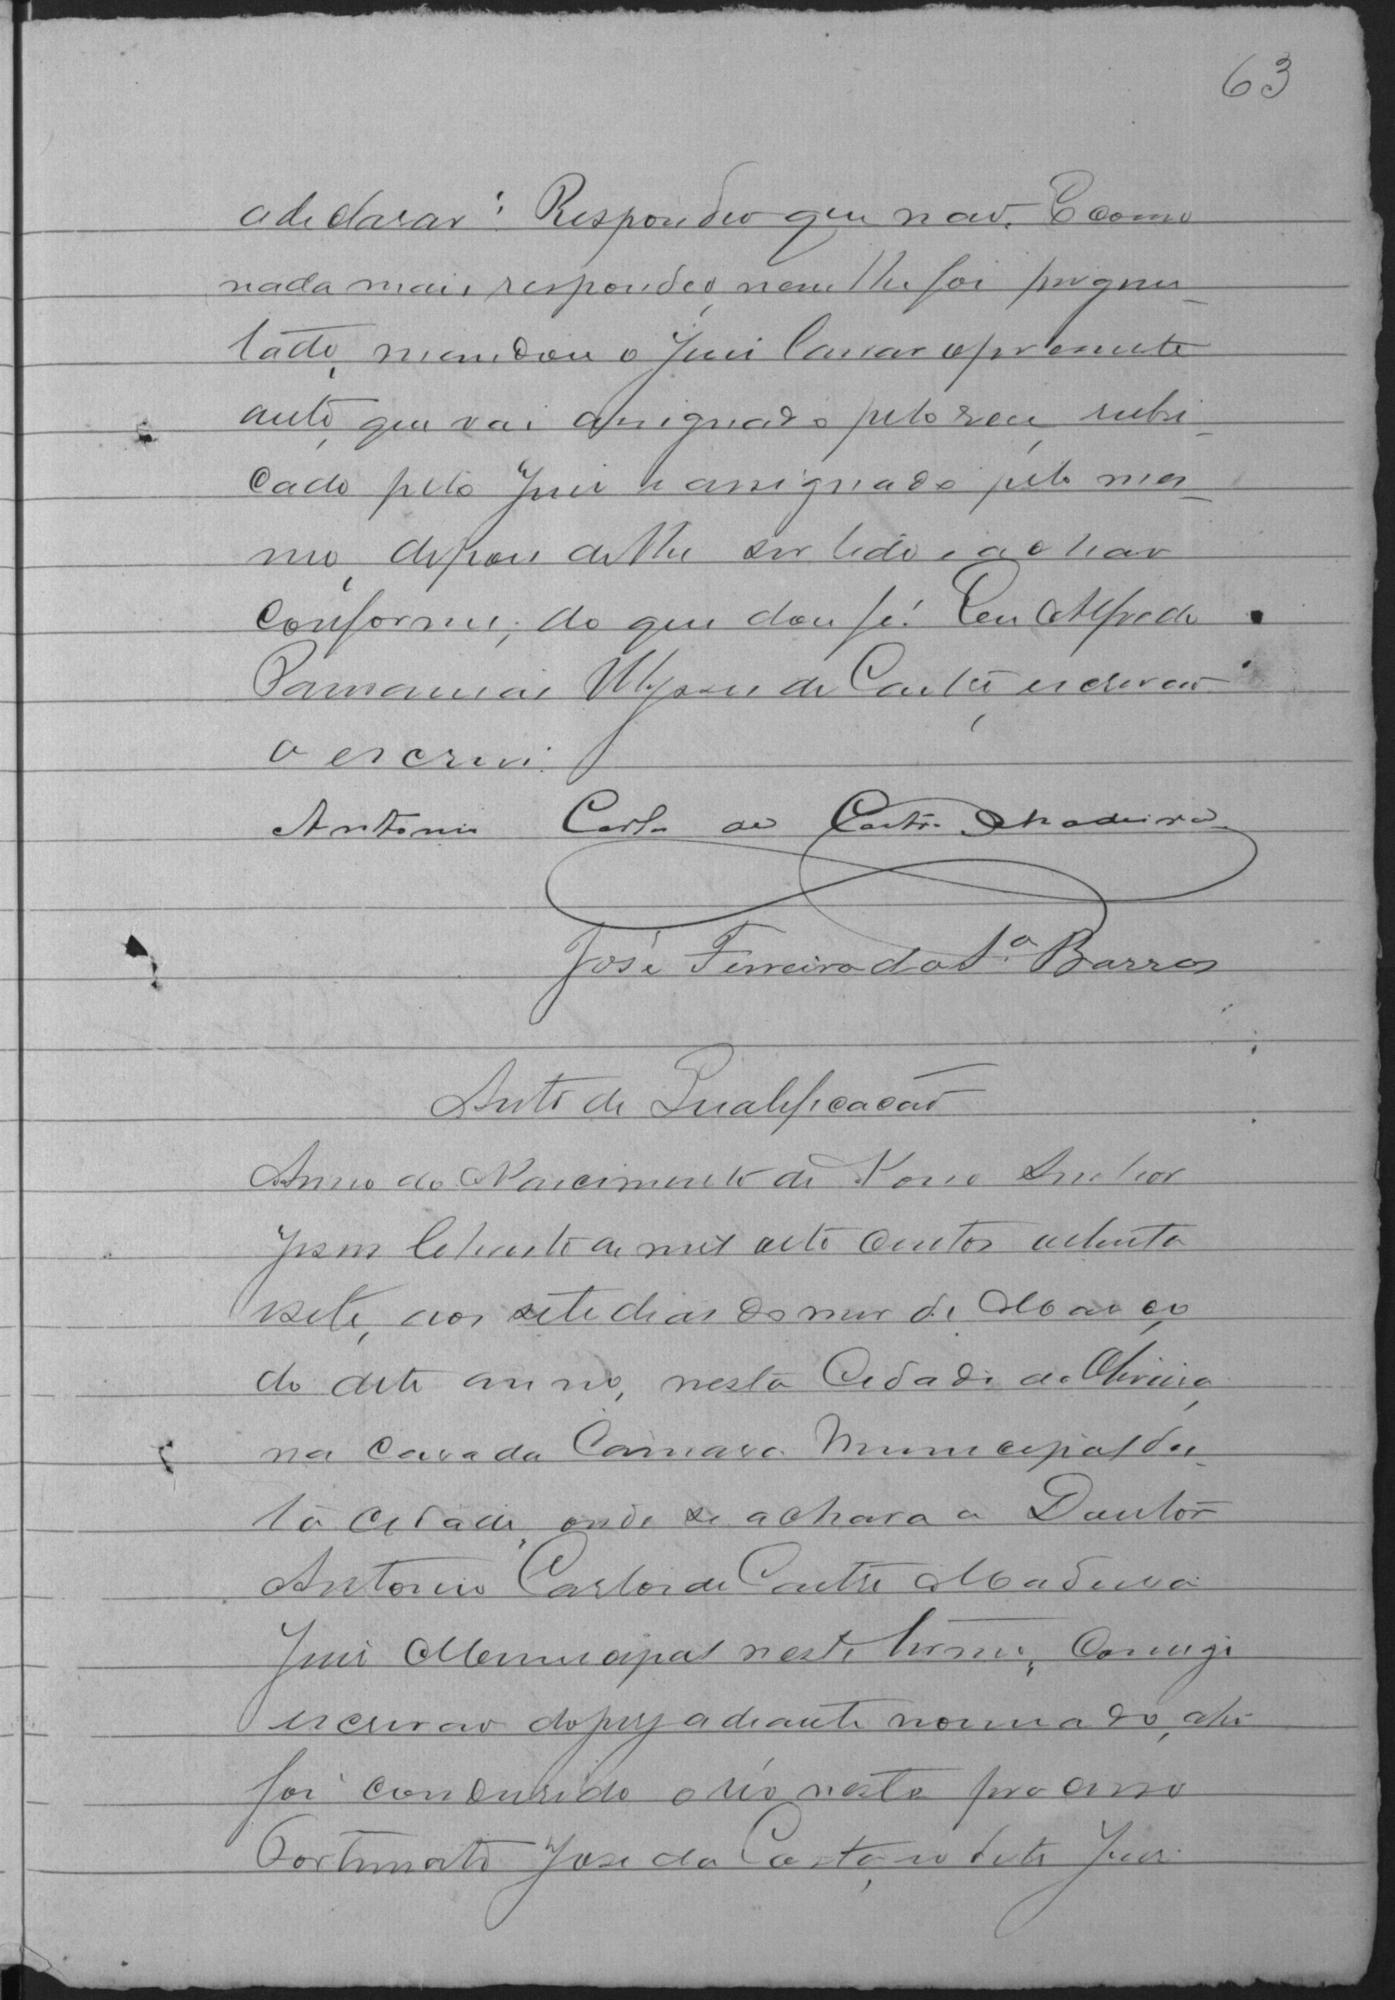 63
a declarar? Respondeo que não. E como
nada mais respondeo, nem lhe foi pregun-
tado, mandou o Juiz lavrar o presente
auto, que vai assignado pelo reu, rubri-
cado pelo Juiz e assignado pelo mes-
mo, depois de lhe ser lido e achar
conforme; do que dou fé. Eu Alfredo
Ulysses de Castro, escrivão
o escrevi.
Antonio Carlos de Castro Madeira
José Ferreira da Sª Barros
Auto de Qualificação
Anno do Nascimento de Nosso Senhor
Jesus Christo de mil oito centos oitenta
e sete, aos sete dias do mez de Março
do dito anno, nesta Cidade de Oliveira,
na casa da Camara Municipal des-
ta cidade, onde se achava o Doutor
Antonio Carlos de Castro Madeira
Juiz Municipal neste termo, comigo
escrivão do jury adiante nomeado, ahi
foi conduzido o réo neste processo
Fortunato José da Costa, e o dito Juiz